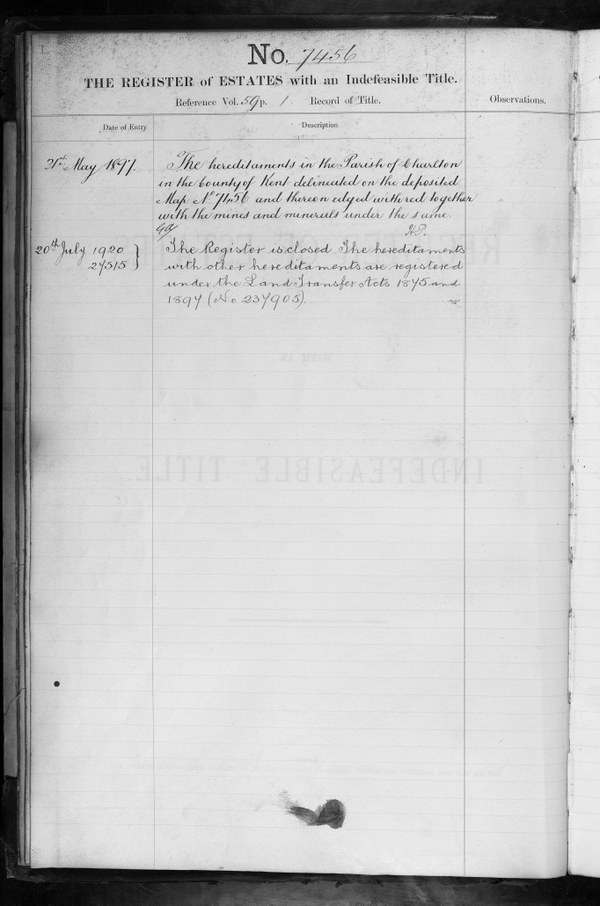 No. 7456
THE REGISTER of ESTATES with an Indefeasible Title.
Reference Vol. 59 p. 1 Record of Title.
Observations.
Date of Entry
Description
31st May 1897.
The hereditaments in the Parish of Charlton
in the County of Kent delineated on the deposited
Map No 7456 and thereon edged with red together
with the mines and minerals under the same.
20th July 1920
27515
The Register is closed The hereditaments
with other hereditaments are registered
under the Land Transfer Acts 1875 and
1897 (No 237905).